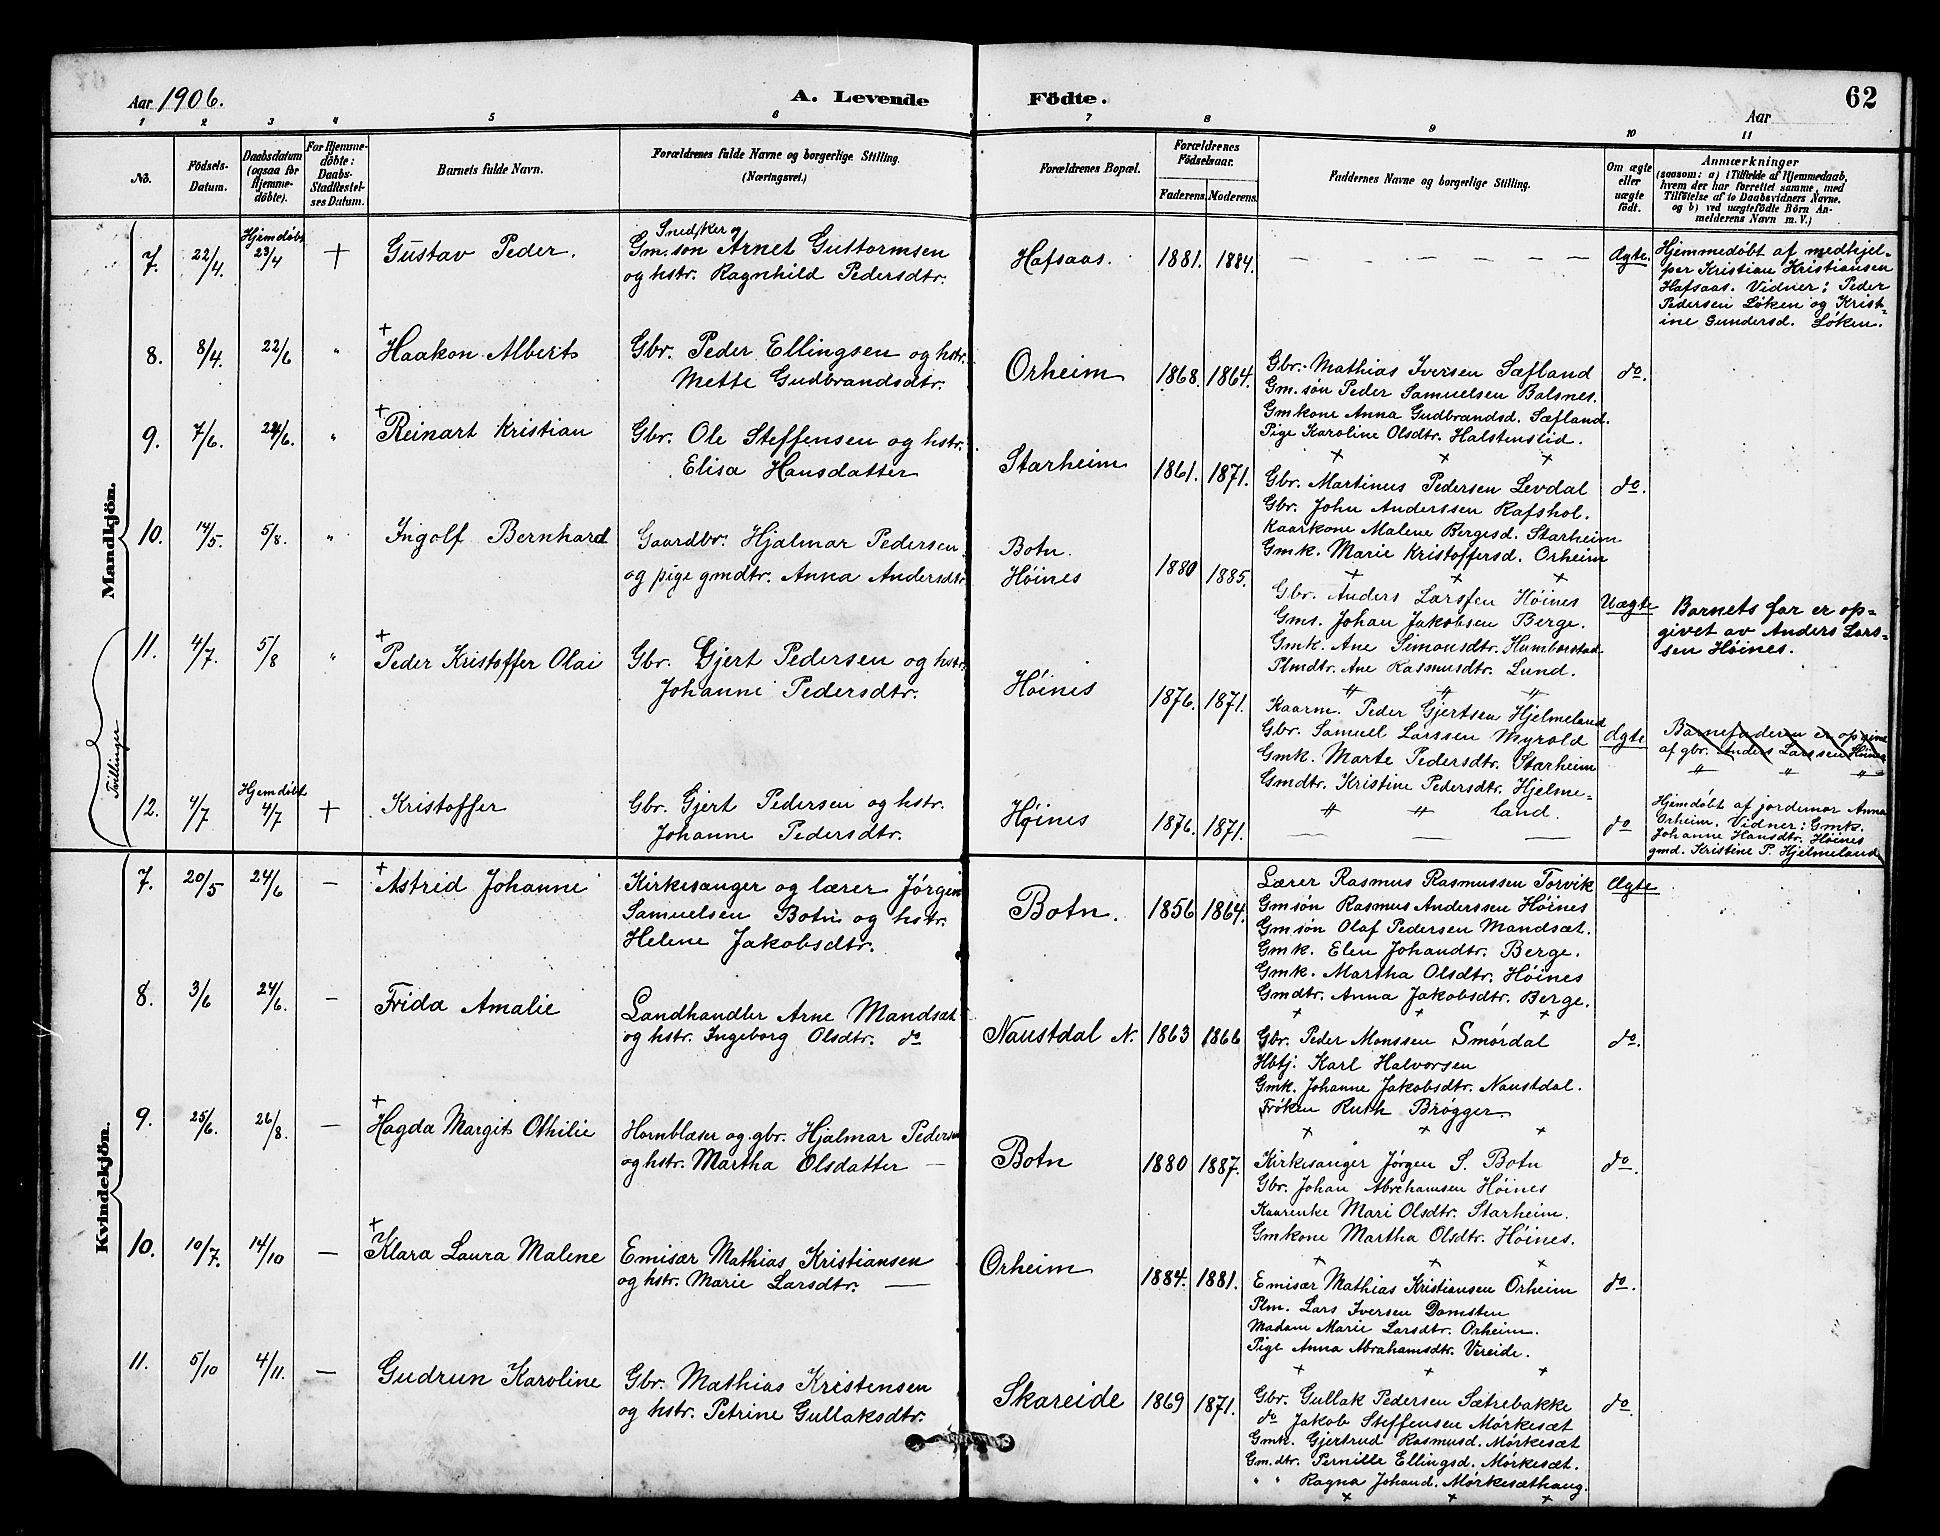 Aar 1906.
A. Levende Födte.
Aar
62
1 2 3 4 5 6 7 8 9 10 11
No.
Födsels-Datum.
Daabsdatum (ogsaa for Hjemme-döbte).
For Hjemme-döbte: Daabs-Stadfæstel-ses Datum.
Barnets fulde Navn.
Forældrenes fulde Navne og borgerlige Stilling.
(Næringsvei.)
Forældrenes Bopæl.
Forældrenes Födselsaar.
Faderens. Moderens.
Faddernes Navne og borgerlige Stilling.
Om ægte eller uægte födt.
Anmærkninger
(saasom: a) i Tilfælde af Hjemmedaab,
hvem der har forrettet samme, med
Tilföielse af to Daabsvidners Navne.
og b) ved uægtefödte Börn An-
melderens Navn m. V.)
Mandkjön.
7. 22/4. Hjemdøbt 23/4 + Gustav Peder.
Snedker og
Gm.søn Arnet Guttormsen
og hstr. Ragnhild Pedersdtr.
Hafsaas. 1881. 1884. — — — — — — Ægte.
Hjemmedøbt af medhjel-
per Kristian Kristiansen
Hafsaas. Vidner: Peder
Pedersen Løken og Krist-
ine Gundersd. Løken.
8. 8/4. 22/6 " + Haakon Albert
Gbr. Peder Ellingsen og hstr.
Mette Gudbrandsdtr.
Orheim 1868. 1864.
Gbr. Mathias Iversen Sæfland
Gm.søn Peder Samuelsen Balsnes.
Gmkone Anna Gudbrandsd. Sæfland.
Pige Karoline Olsdtr. Halstenslid.
+ + +
do.
9. 7/6. 24/6. " + Reinart Kristian
Gbr. Ole Steffensen og hstr.
Elisa Hansdatter
Starheim 1861. 1871.
Gbr. Martinus Pedersen Levdal
Gbr. John Anderssen Rafshol.
Kaarkone Malene Bergesd. Starheim
Gmk. Marie Kristoffersd. Orheim
+ + +
do.
10. 14/5. 5/8. " Ingolf Bernhard
Gaardbr. Hjalmar Pedersen
og pige gmdtr. Anna Andersdtr
Botn.
Høines
1880 1885.
Gbr. Anders Larssen Høines
Gms. Johan Jakobsen Berge.
Gmk. Ane Simonsdtr. Humborstad
Plmdtr. Ane Rasmusdtr. Lund.
" " "
Uægte
Barnets far er op-
givet av Anders Lars-
sen Høines.
Tvillinger
11. 4/7. 5/8 " + Peder Kristoffer Olai
Gbr. Gjert Pedersen og hstr.
Johanne Pedersdtr.
Høines 1876. 1871.
Kaarm. Peder Gjertsen Hjelmeland
Gbr. Samuel Larssen Myrold
Gmk. Marte Pedersdtr. Starheim
Gmdtr. Kristine Pedersdtr. Hjelme-
" " land.
Ægte
Barnefaderen er opgivet
af gbr. Anders Larssen Høines
" " "
12. 4/7 Hjemdøbt 4/7 + Kristoffer
Gbr. Gjert Pedersen og hstr.
Johanne Pedersdtr.
Høines 1876. 1871. — — — — do
Hjemdøbt af jordemor Anna
Orheim. Vidner: Gmk.
Johanne Hansdtr. Høines
gmd. Kristine P. Hjelmeland
Kvindekjön.
7. 20/5 24/6 — + Astrid Johanne
Kirkesanger og lærer Jørgen
Samuelsen Botn og hstr.
Helene Jakobsdtr.
Botn. 1856 1864.
Lærer Rasmus Rasmussen Torvik
Gmsøn Rasmus Anderssen Høines
Gm.søn Olaf Pedersen Mandsæt.
Gmk. Elen Johandtr. Berge.
Gmk. Martha Olsdtr. Høines
Gmdtr. Anna Jakobsdtr. Berge.
+ + +
Ægte
8. 3/6 24/6. — Frida Amalie
Landhandler Arne Mandsæt
og hstr. Ingeborg Olsdtr. do
Naustdal N. 1863 1866
Gbr. Peder Monssen Smørdal
Hbtj. Karl Halvorsen
Gmk. Johanne Jakobsdtr. Naustdal.
Frøken Ruth Brøgger.
+ + +
do.
9. 25/6. 26/8. — + Hagda Margit Othilie
Hornblæser og gbr. Hjalmar Pedersen
og hstr. Martha Olsdatter —
Botn 1880 1887.
Kirkesanger Jørgen S. Botn
Gbr. Johan Abrahamsen Høines
Kaarenke Mari Olsdtr. Starheim.
Gmkone Martha Olsdtr. Høines.
+ + +
do.
10. 10/7. 14/10 — + Klara Laura Malene
Emisær Mathias Kristiansen
og hstr. Marie Larsdtr. —
Orheim 1884. 1881.
Emisær Mathias Kristiansen Orheim
Plm. Lars Iversen Domsten
Madam Marie Larsdtr. Orheim.
Pige Anna Abrahamsdtr. Vereide.
+ + +
do.
11. 5/10 4/11. — Gudrun Karoline
Gbr. Mathias Kristensen
og hstr. Petrine Gullaksdtr.
Skareide 1869 1871.
Gbr. Gullak Pedersen Sætrebakke
do Jakob Steffensen Mørkesæt
Gmk. Gjertrud Rasmusd. Mørkesæt
Gm.dtr. Pernille Ellingsd. Mørkesæt.
" " Ragna Johand. Mørkesæthaug.
+ + +
do.